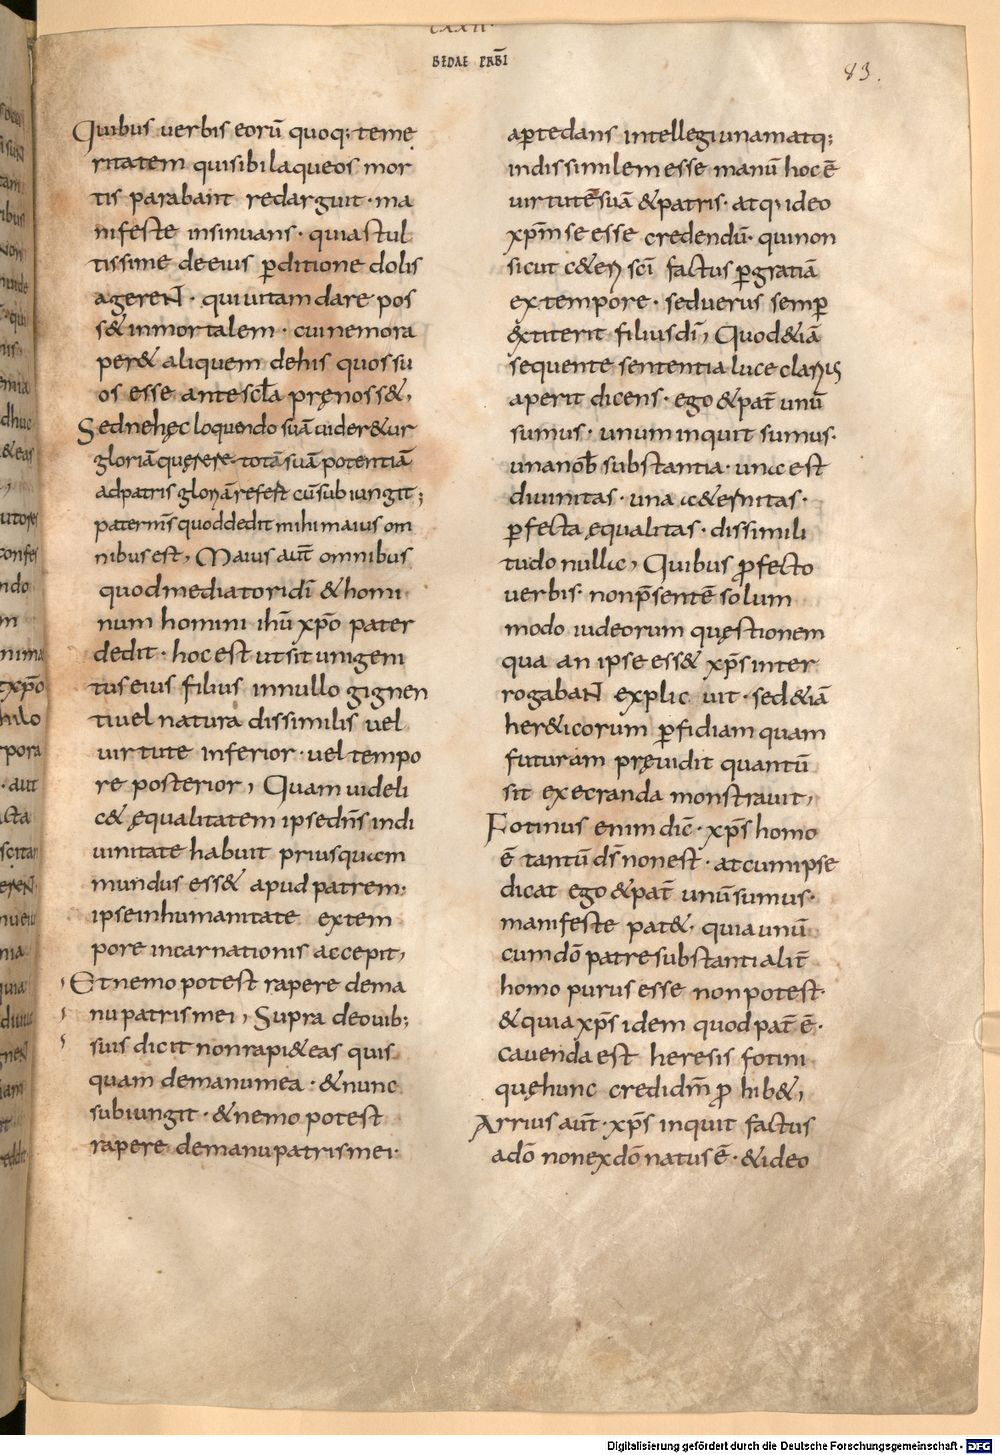 CXXII·
BEDAE PRB̅I
83.
Quibus uerbis eorū quoq; teme
ritatem qui sibi laqueos mor
tis parabant redarguit · ma
nifeste insinuans · quia stul
tissime de eius p̲ditione dolis
agereNt · qui uitam dare pos
s& inmortalem · cui nemo ra
per& aliquem de his quos su
os esse ante scl̅a pręnoss&,
Sed ne hęc loquendo suā uider&ur
gloriā quęrere · totā suā potentiā
ad patris gloriā refert cū subiungit;
pater m̅s quod dedit mihi maius om
nibus est, Maius aut̅ omnibus
quod mediatori dī & homi
num homini ihū xp̅o pater
dedit · hoc est ut sit unigeni
tus eius filius in nullo gignen
ti uel natura dissimilis uel
uirtute inferior · uel tempo
re posterior, Quam uideli
c& ęqualitatem ipse dn̅s in di
uinitate habuit priusquam
mundus ess& apud patrem ·
ipse in humanitate ex tem
pore incarnationis accepit,
Et nemo potest rapere de ma
nu patris mei, Supra de ouib;
suis dicit non rapi& eas quis
quam de manu mea · & nunc
subiungit · & nemo potest
rapere de manu patris mei ·
ap̲te dans intellegi unam atq;
indissimilem esse manū hoc ē
uirtutē suā & patris · atq; ideo
xp̅m se esse credendū · qui non
sicut c&eri sc̅i factus p̲ gratiā
ex tempore · sed uerus semp̲
extiterit filius dī, Quod &iā
sequente sententia luce clarius
aperit dicens · ego & pat̅ unū
sumus · unum inquit sumus ·
una nob̅ substantia · una est
diuinitas · una a&ernitas ·
p̲fecta ęqualitas · dissimili
tudo nulla, Quibus p̲fecto
uerbis · non p̅sentē solum
modo iudeorum quęstionem
qua an ipse ess& xp̅s inter
rogabaNt explicauit · sed &iā
her&icorum p̲fidiam quam
futuram pręuidit quantū
sit execranda monstrauit,
Fotinus enim dic̅ · xp̅s homo
ē tantū ds̅ non est · at cum ipse
dicat ego & pat̅ unū sumus ·
manifeste pat& · quia unū
cum dō patre substantialit̅
homo purus esse non potest ·
& quia xp̅s idem quod pat̅ ē ·
cauenda est heresis fotini
quę hunc credi dm̅ prohib&,
Arrius aut̅ · xp̅s inquit factus
a dō non ex dō natus ē · & ideo
Digitalisierung gefördert durch die Deutsche Forschungsgemeinschaft - DFG